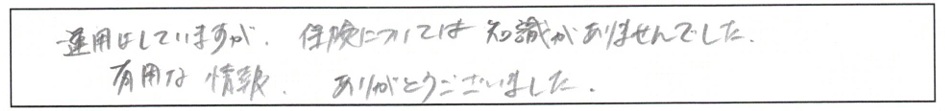 運用はしていますが、保険については知識がありませんでした。
有用な情報、ありがとうございました。